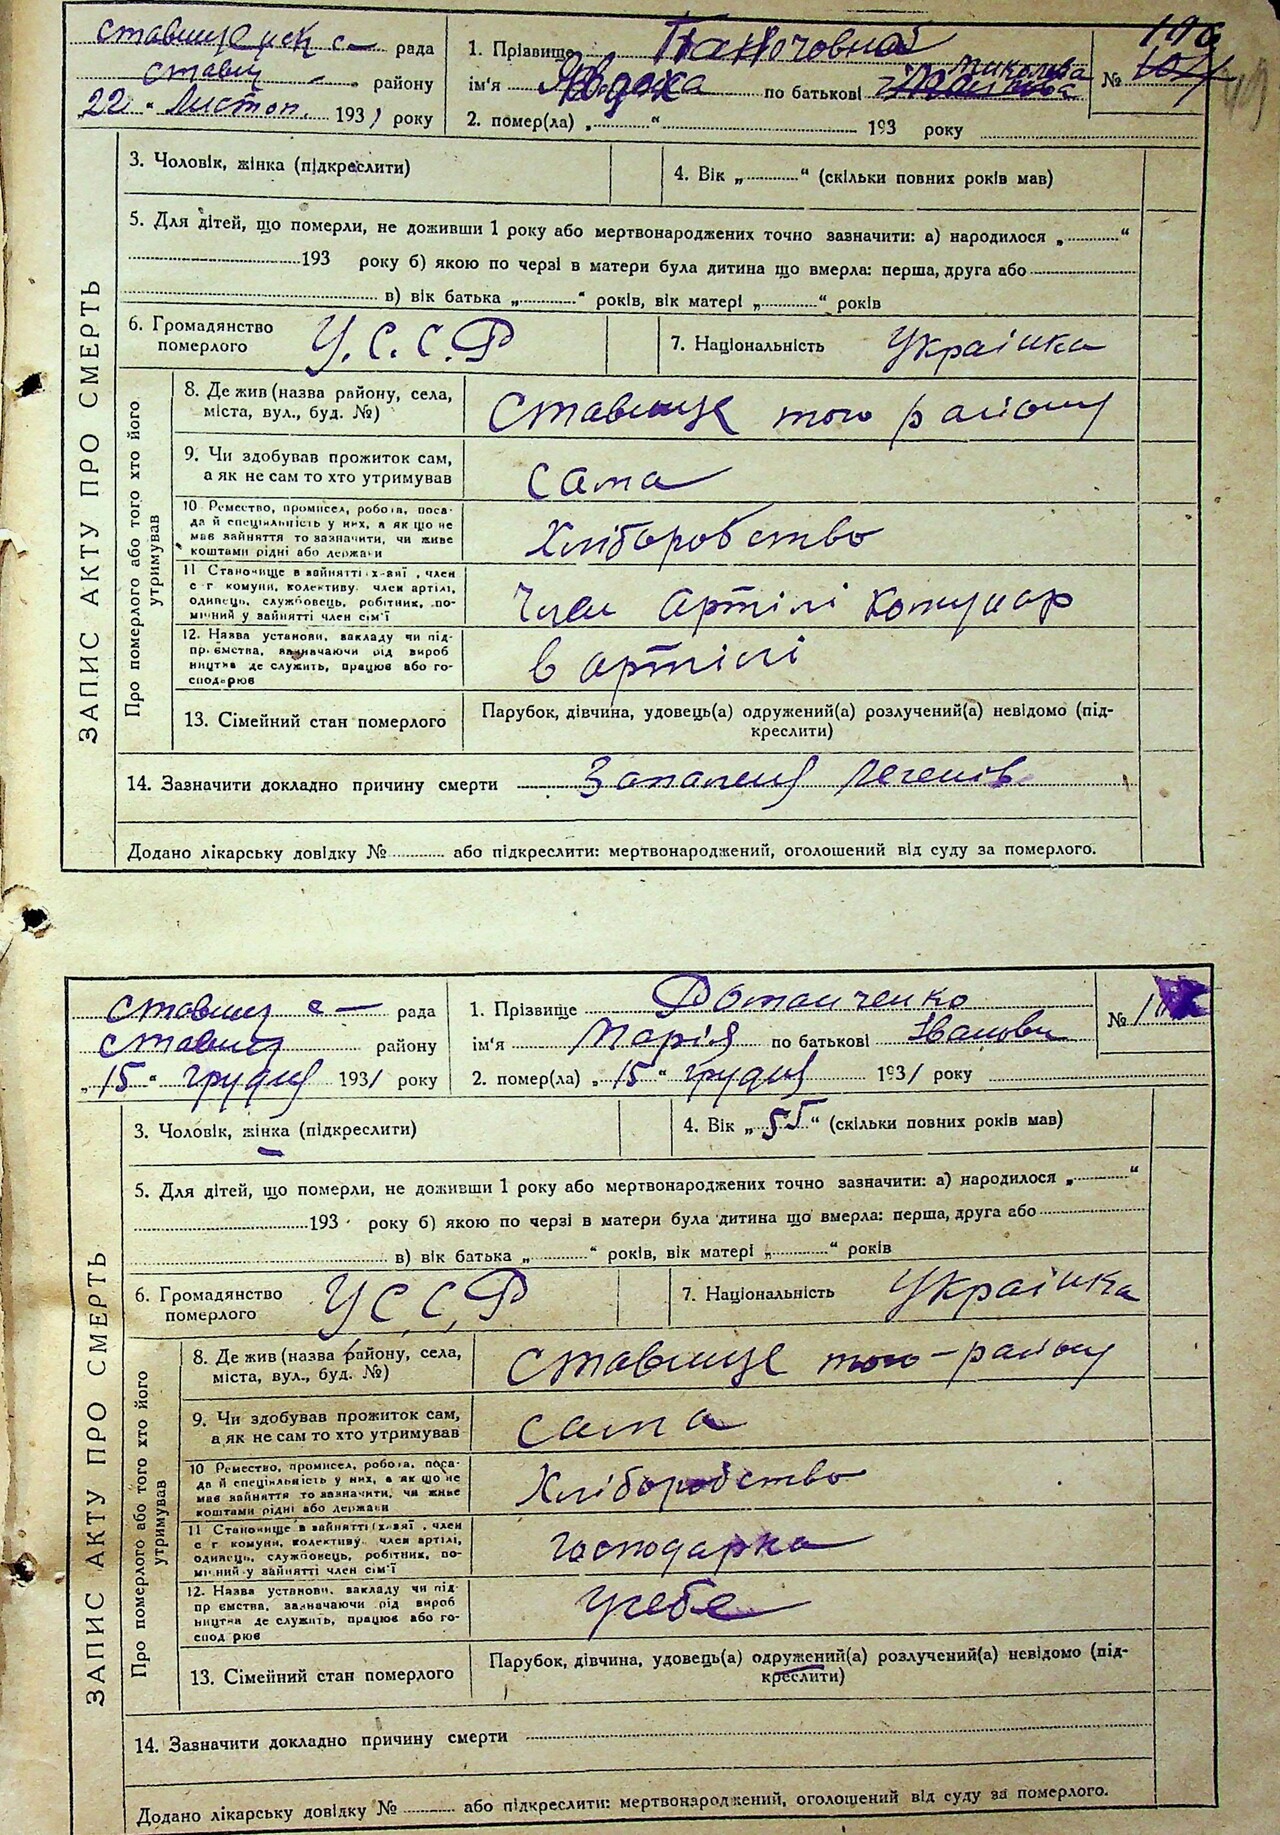 ставищеск с— рада
ставищ — району
22 " Листоп. 1931 року
1. Прізвище
ім'я Явдоха по батькові Миколова
№ 106
2. помер(ла) „ “ 193 року
ЗАПИС АКТУ ПРО СМЕРТЬ
3. Чоловік, жінка (підкреслити)
4. Вік „ “ (скільки повних років мав)
5. Для дітей, що померли, не доживши 1 року або мертвонароджених точно зазначити: а) народилося „ “
193 року б) якою по черзі в матери була дитина що вмерла: перша, друга або
в) вік батька „ “ років, вік матері „ “ років
6. Громадянство
померлого
У.С.С.Р
7. Національність Українка
Про померлого або того хто його
утримував
8. Де жив (назва району, села,
міста, вул., буд. №)
Ставище того району
9. Чи здобував прожиток сам,
а як не сам то хто утримував
сама
10 Ремество, промисел, робота, поса-
да й спеціяльність у них, а як що не
має зайняття то зазначити, чи живе
коштами рідні або держави
Хліборобство
11 Становище в зайнятті (х-вяї, член
с г комуни, колективу член артілі,
одинець, службовець, робітник, по-
мічний у зайнятті член сім'ї
Член артілі комунар
12. Назва установи, закладу чи під-
приємства, зазначаючи рід вироб
ництва де служить, працює або го-
сподарює
в артілі
13. Сімейний стан померлого
Парубок, дівчина, удовець(а) одружений(а) розлучений(а) невідомо (під-
креслити)
14. Зазначити докладно причину смерти Запалення легенів
Додано лікарську довідку № або підкреслити: мертвонароджений, оголошений від суду за померлого.
ставищ с— рада
ставищ району
„15“ грудня 1931 року
1. Прізвище
ім'я Марія по батькові Іванови
№
2. помер(ла) „15“ грудня 1931 року
ЗАПИС АКТУ ПРО СМЕРТЬ
3. Чоловік, жінка (підкреслити)
4. Вік „55“ (скільки повних років мав)
5. Для дітей, що померли, не доживши 1 року або мертвонароджених точно зазначити: а) народилося „ “
193 року б) якою по черзі в матери була дитина що вмерла: перша, друга або
в) вік батька „ “ років, вік матері „ “ років
6. Громадянство
померлого
У.С.С.Р
7. Національність Українка
Про померлого або того хто його
утримував
8. Де жив (назва району, села,
міста, вул., буд. №)
Ставище того – району
9. Чи здобував прожиток сам,
а як не сам то хто утримував
сама
10 Ремество, промисел, робота, поса-
да й спеціяльність у них, а як що не
має зайняття то зазначити, чи живе
коштами рідні або держави
Хліборобство
11 Становище в зайнятті (х-вяї, член
с г комуни, колективу член артілі,
одинець, службовець, робітник, по-
мічний у зайнятті член сім'ї
господарка
12. Назва установи, закладу чи під-
приємства, зазначаючи рід вироб
ництва де служить, працює або го-
сподарює
у себе
13. Сімейний стан померлого
Парубок, дівчина, удовець(а) одружений(а) розлучений(а) невідомо (під-
креслити)
14. Зазначити докладно причину смерти
Додано лікарську довідку № або підкреслити: мертвонароджений, оголошений від суду за померлого.